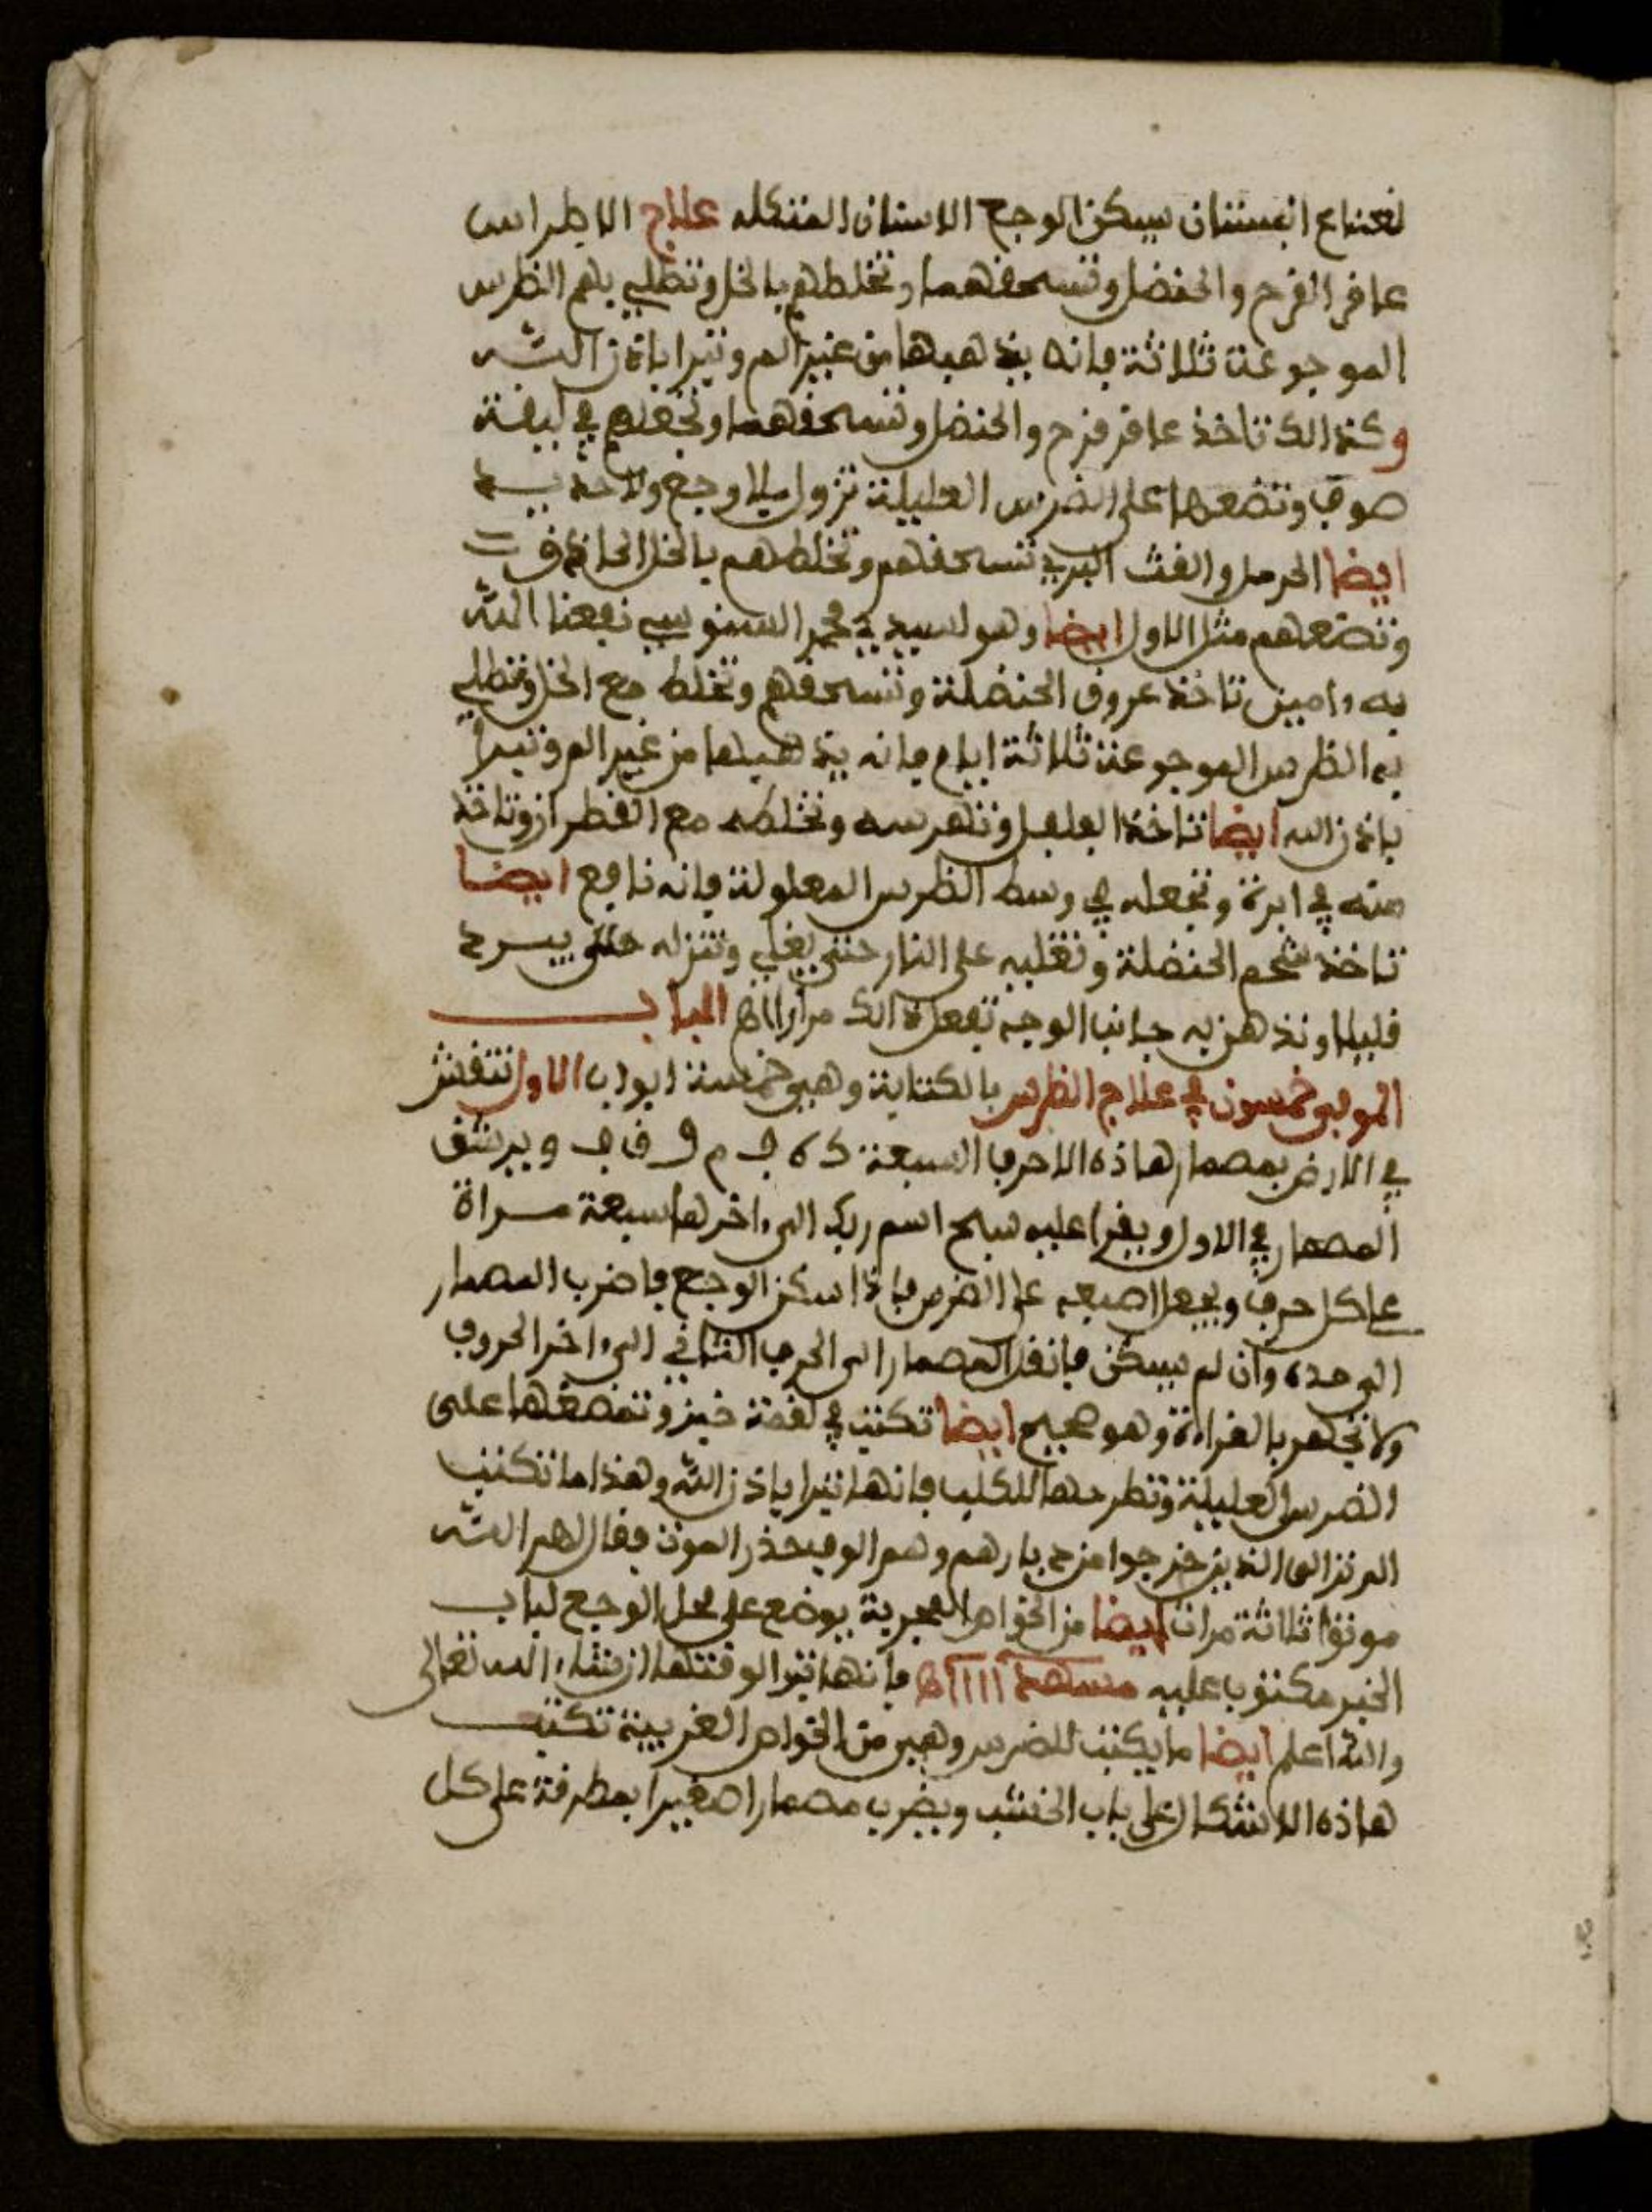 نعناع البستان يسكن الوجع الاسنان المتكله علاج الاطراس
عاقر القرح والحنضل وتسحقهما وتخلطهم بالخل وتطلي بهم الظرس
الموجوعة ثلاثة فانه يذهبها من غير الم وتبرا باذن الله
وكذالك تاخذ عاقر قرح والحنضل وتسحقهما وتجعلهم في ليقة
صوف وتضعها على الضرس العليلة تزول بلا وجع ولا حديد
ايضا الحرمل والفث البري تسحقهم وتخلطهم بالخل الحاذق
وتضعهم مثل الاول ايضا وهو لسيدي محمد السنوسي نفعنا الله
به ءامين تاخذ عروق الحنضلة وتسحقهم وتخلط مع الخل وتطلي
به الظرس الموجوعة ثلاثة ايام فانه يذهبها من غير الم وتبرا
باذن الله ايضا تاخذ الفلفل وتهرسه وتخلطه مع القطران وتاخذ
منه في ابرة وتجعله في وسط الظرس المعلولة فانه نافع ايضا
تاخذ شحم الحنضلة وتغليه على النار حتى يغلي وتنزله حتى يبرد
قليلا وتدهن به جانب الوجه تفعل ذالك مرارا الباب
الموفي خمسون في علاج الظرس بالكتابة وهي خمسة ابواب الاول تنقش
في الارض بمصمار هاذه الاحرف السبعة ويرشق
المصمار في الاول ويقرا عليه سبح اسم ربك الى ءاخرها سبعة مراة
على كل حرف ويجعل اصبعه على الضرس فاذا سكن الوجع فاضرب المصمار
الى حده وان لم يسكن فانقل المصمار الى الحرف الثاني الى ءاخر الحروف
ولا تجهر بالقراءة وهو صحيح ايضا تكتب في لقمة خبز وتمضغها على
الضرس العليلة وتطرحها للكلب فانها تبرا باذن الله وهذا ما تكتب
الم تر الى الذين خرجوا من ديارهم وهم الوف حذر الموت فقال لهم الله
موتوا ثلاثة مرات ايضا من الخواص المجربة يوضع على محل الوجع لباب
الخبز مكتوب عليه فانها تبرا لوقتها ان شاء الله تعالى
والله اعلم ايضا ما يكتب للضرس وهي من الخواص الغريبة تكتب
هاذه الاشكال على باب الخشب ويضرب مصمارا صغيرا بمطرفة على كل